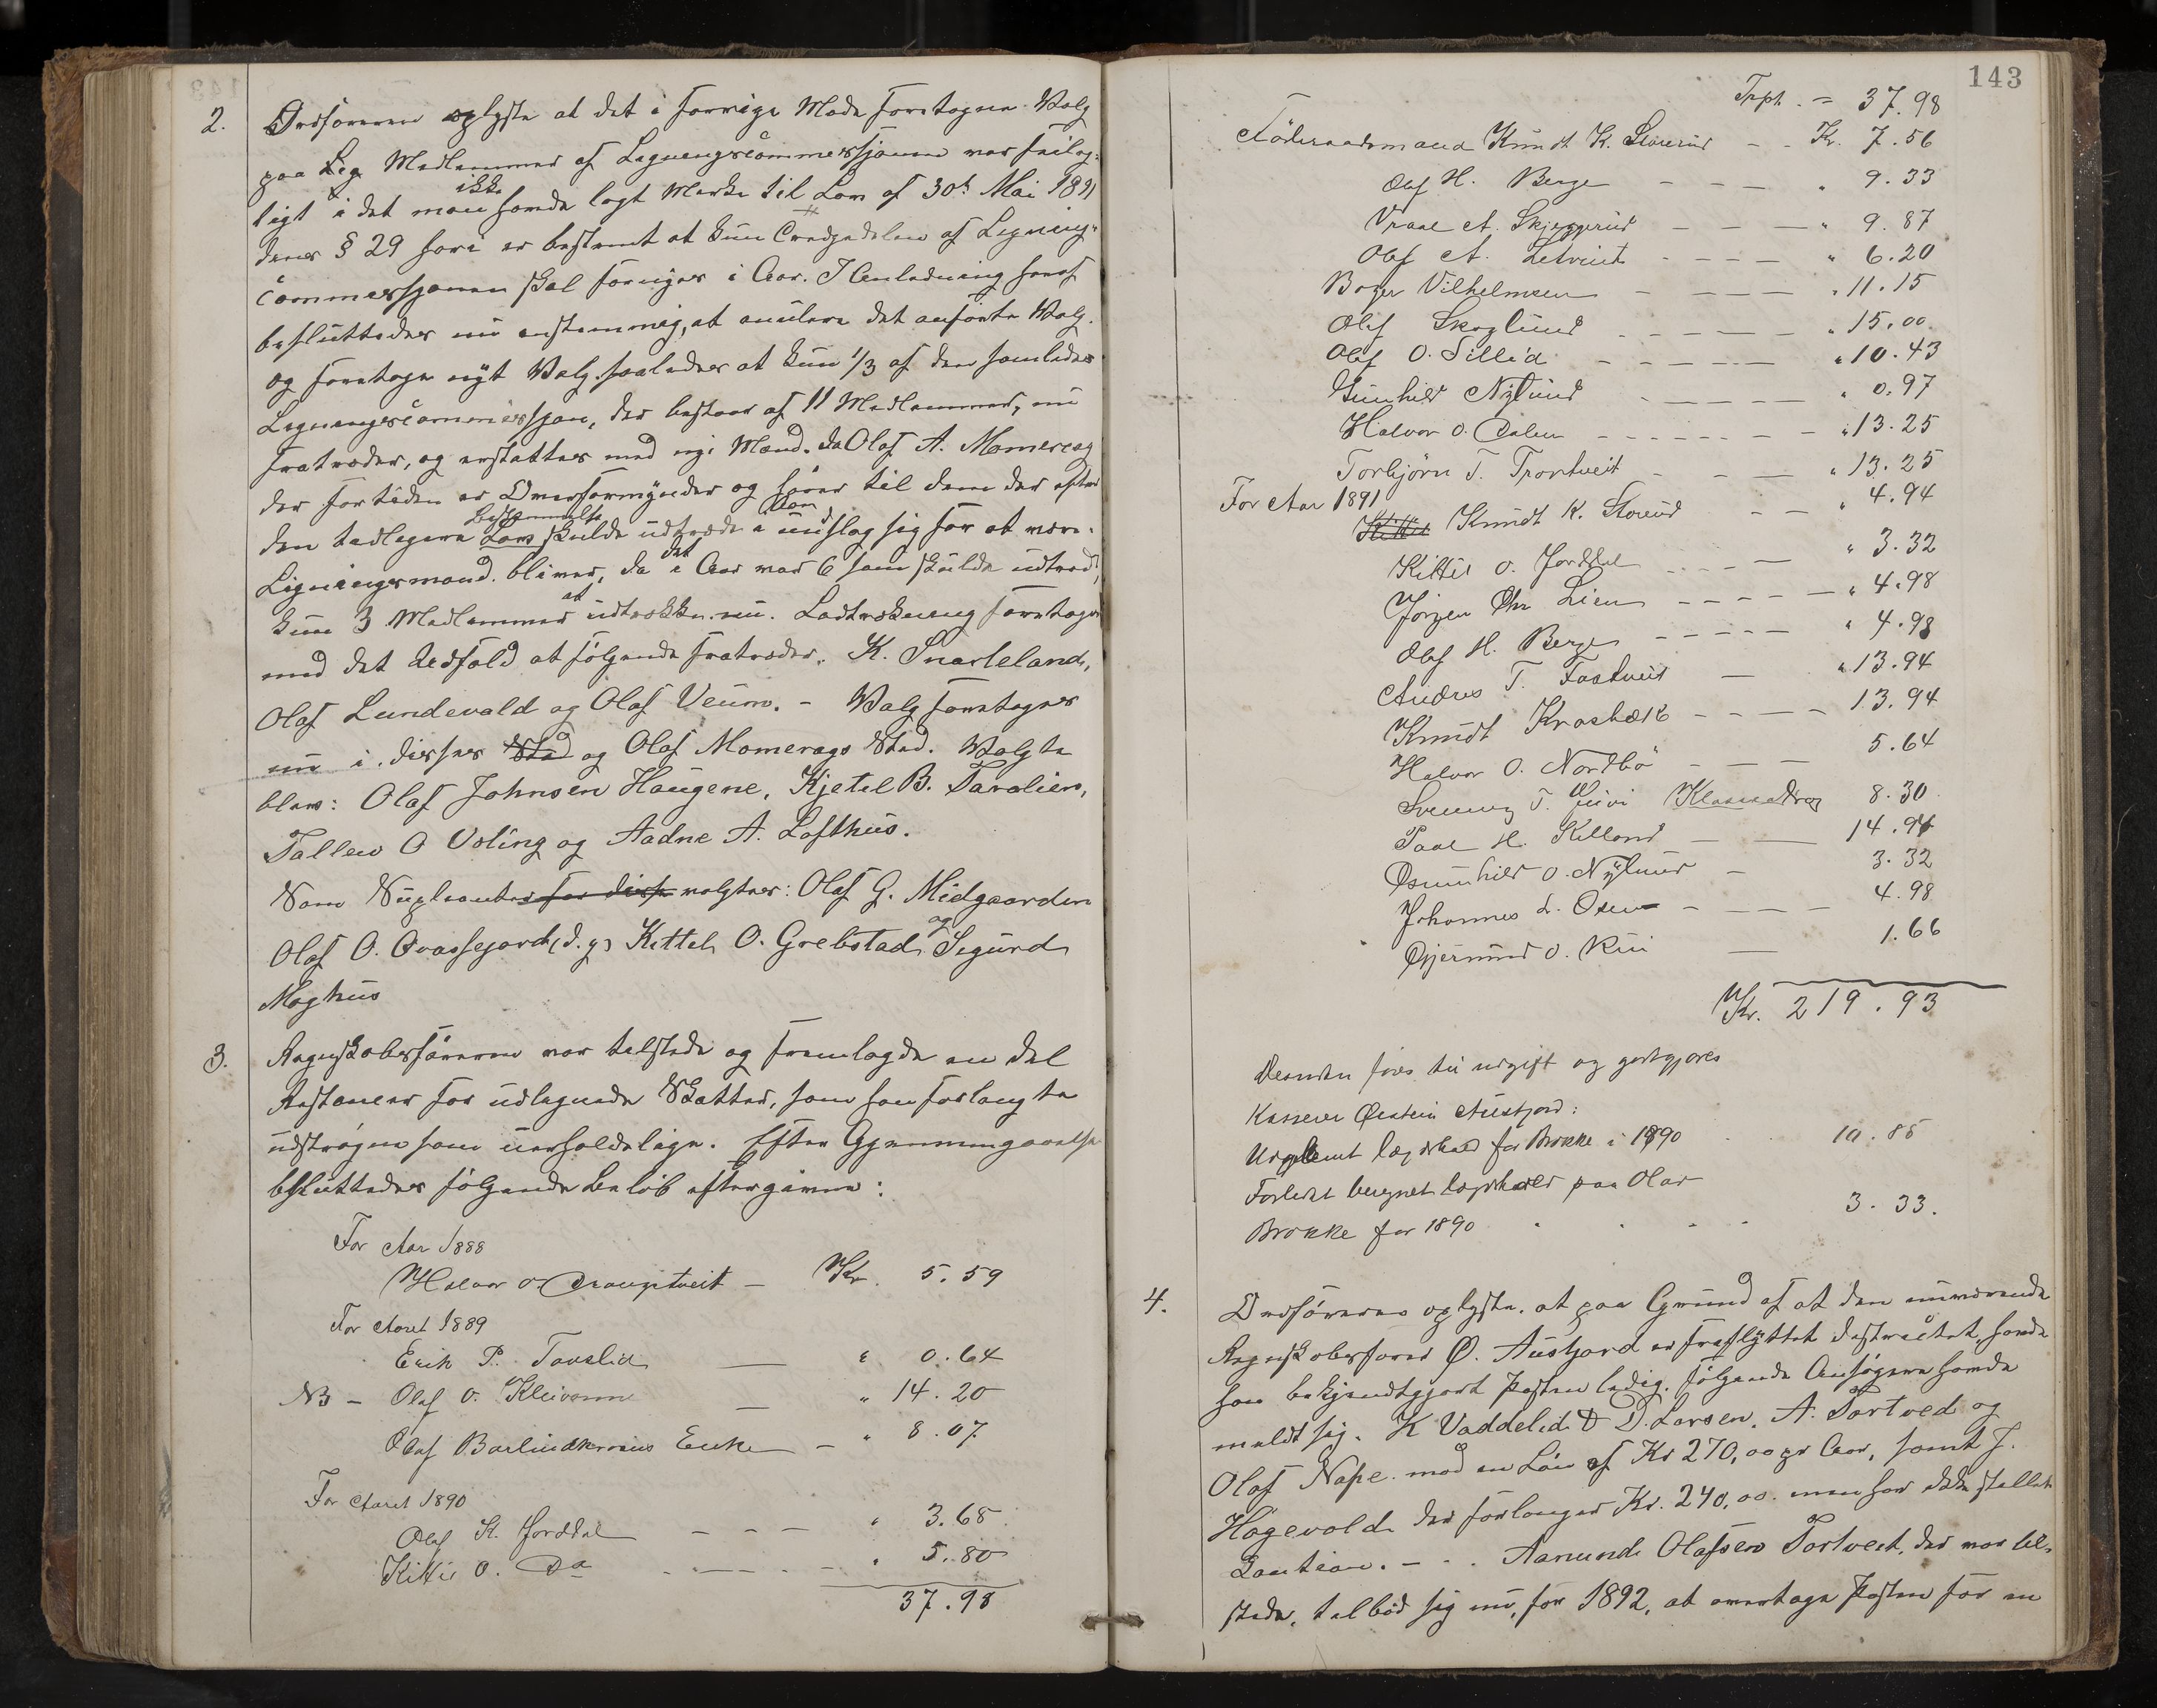 2. Ordføreren oplyste at det i forrige Møde foretagne Valg
paa Lig Medlemmer af Ligningscommissjonen var feilag-
tigt i det man ikke havde lagt Mærke til Lov af 30te Mai 1891
dens § 29 hvori er bestemt at kun Tredjedelen af Lignings-
commissjonen skal fornyes i Aar. I Anledning heraf
besluttedes nu enstemmig, at anulere det anførte Valg
og foretage nyt Valg saaledes at kun 1/3 af den samlede
Ligningscommissjon, der bestaar af 11 Medlemmer, nu
fratræder, og erstattes med nye Mænd. Da Olaf A. Momerag
der fortiden er Overformynder og hører til dem der efter
den tidligere Lovs bestemmelse skulde udtræde nu slog sig for at være
Ligningsmand. bliver, da det i Aar var 6 som skulde udtræde,
kun 3 Medlemmer at udtrække nu. Lodtrækning foretoges
med det Udfald at følgende fratræder. K. Snarteland,
Olaf Lundevald og Olaf Veum. - Valg foretoges
nu i disses Sted og Olaf Momerags Sted. Valgte
blev: Olaf Johnsen Haugene, Kjetil B. Tarolien,
Tallev O Vsling og Aadne A. Lofthus.
Som Supleanter for disse valgtes: Olaf G. Midgaarden
Olaf O. Qvassejord (d.y) Kittel O. Grebstad og Sigurd
Moghus
3. Regnskabsføreren var tilstede og fremlagde en del
Restancer for udlignede Skatter, som han forlangte
udstrøgne som uerholdelige. Efter Gjennemgaaelse
besluttedes følgende Beløb eftergivne:
For Aar 1888
Halvor O Draugtveit - Kr. 5.59
For Aaret 1889
Erik P. Tovslid — " 0.64
NB - Olaf O. Kleivenne — " 14.20
Olaf Barlindkroens Enke - " 8.07
For Aaret 1890
Olaf K. Jorddal - - - " 3.68
Kittil O. Do - - - - " 5.80
37.98
143
Trpt. = 37.98
Föderaadsmand Knudt K. Storerud - - Kr. 7.56
Olaf H. Berge - - - " 9.33
Vraal A. Skjeggerud - - - " 9.87
Olaf A. Letveit - - - - " 6.20
Boger Vilhelmsen - - - - " 11.15
Olaf Skoglund - - - - - " 15.00
Olaf O. Lillid - - - - - " 10.43
Gunhild Nylund - - - - - " 0.97
Halvor O. Dalen - - - - - - - " 13.25
Torbjörn T. Trontveit - - - " 13.25
For Aar 1891
Kittil Knudt K. Storerud - - " 4.94
Kittil O. Jorddal - - - - " 3.32
Jörgen Chr Lien - - - - - " 4.98
Olaf H. Berge - - - - - " 4.98
Andres T. Fostveit - " 13.94
Knudt Krosbæk - - - - - 13.94
Halvor O. Nordbö - - - 5.64
Svenung T. Juvi Klasseadrag 8.30
Paal H. Killand - - 14.94
Gunhild O. Nylund - 3.32
Johannes L. Osen - - - - 4.98
Gjermund O. Rui - 1.66
Kr. 219.93
Desuden føres til udgift og godtgjøres
Kasserer Øistein Austjord:
Udglemt lægdhold for Brokke i 1890 . . 10.85
Forledet beregnet lægdhold paa Olav
Brokke for 1890 . . . . 3.33.
4. Ordføreren oplyste. at paa Grund af at den nuværende
Regnskabsfører Ø. Austjord er fraflyttet Districtet, havde
han bekjendtgjort Posten ledig. følgende Ansøgere havde
meldt sig. K Vaddelid & D. Larsen. A. Tortved og
Olaf Nape mod en Løn af Kr 270,00 pr Aar, samt J.
Høgevold der forlanger Kr. 240,00. men har ikke stillet
Kaution. - . . Aanund Olafsen Tortveit, der var til-
stede, tilbød sig nu, for 1892, at overtage Posten for en